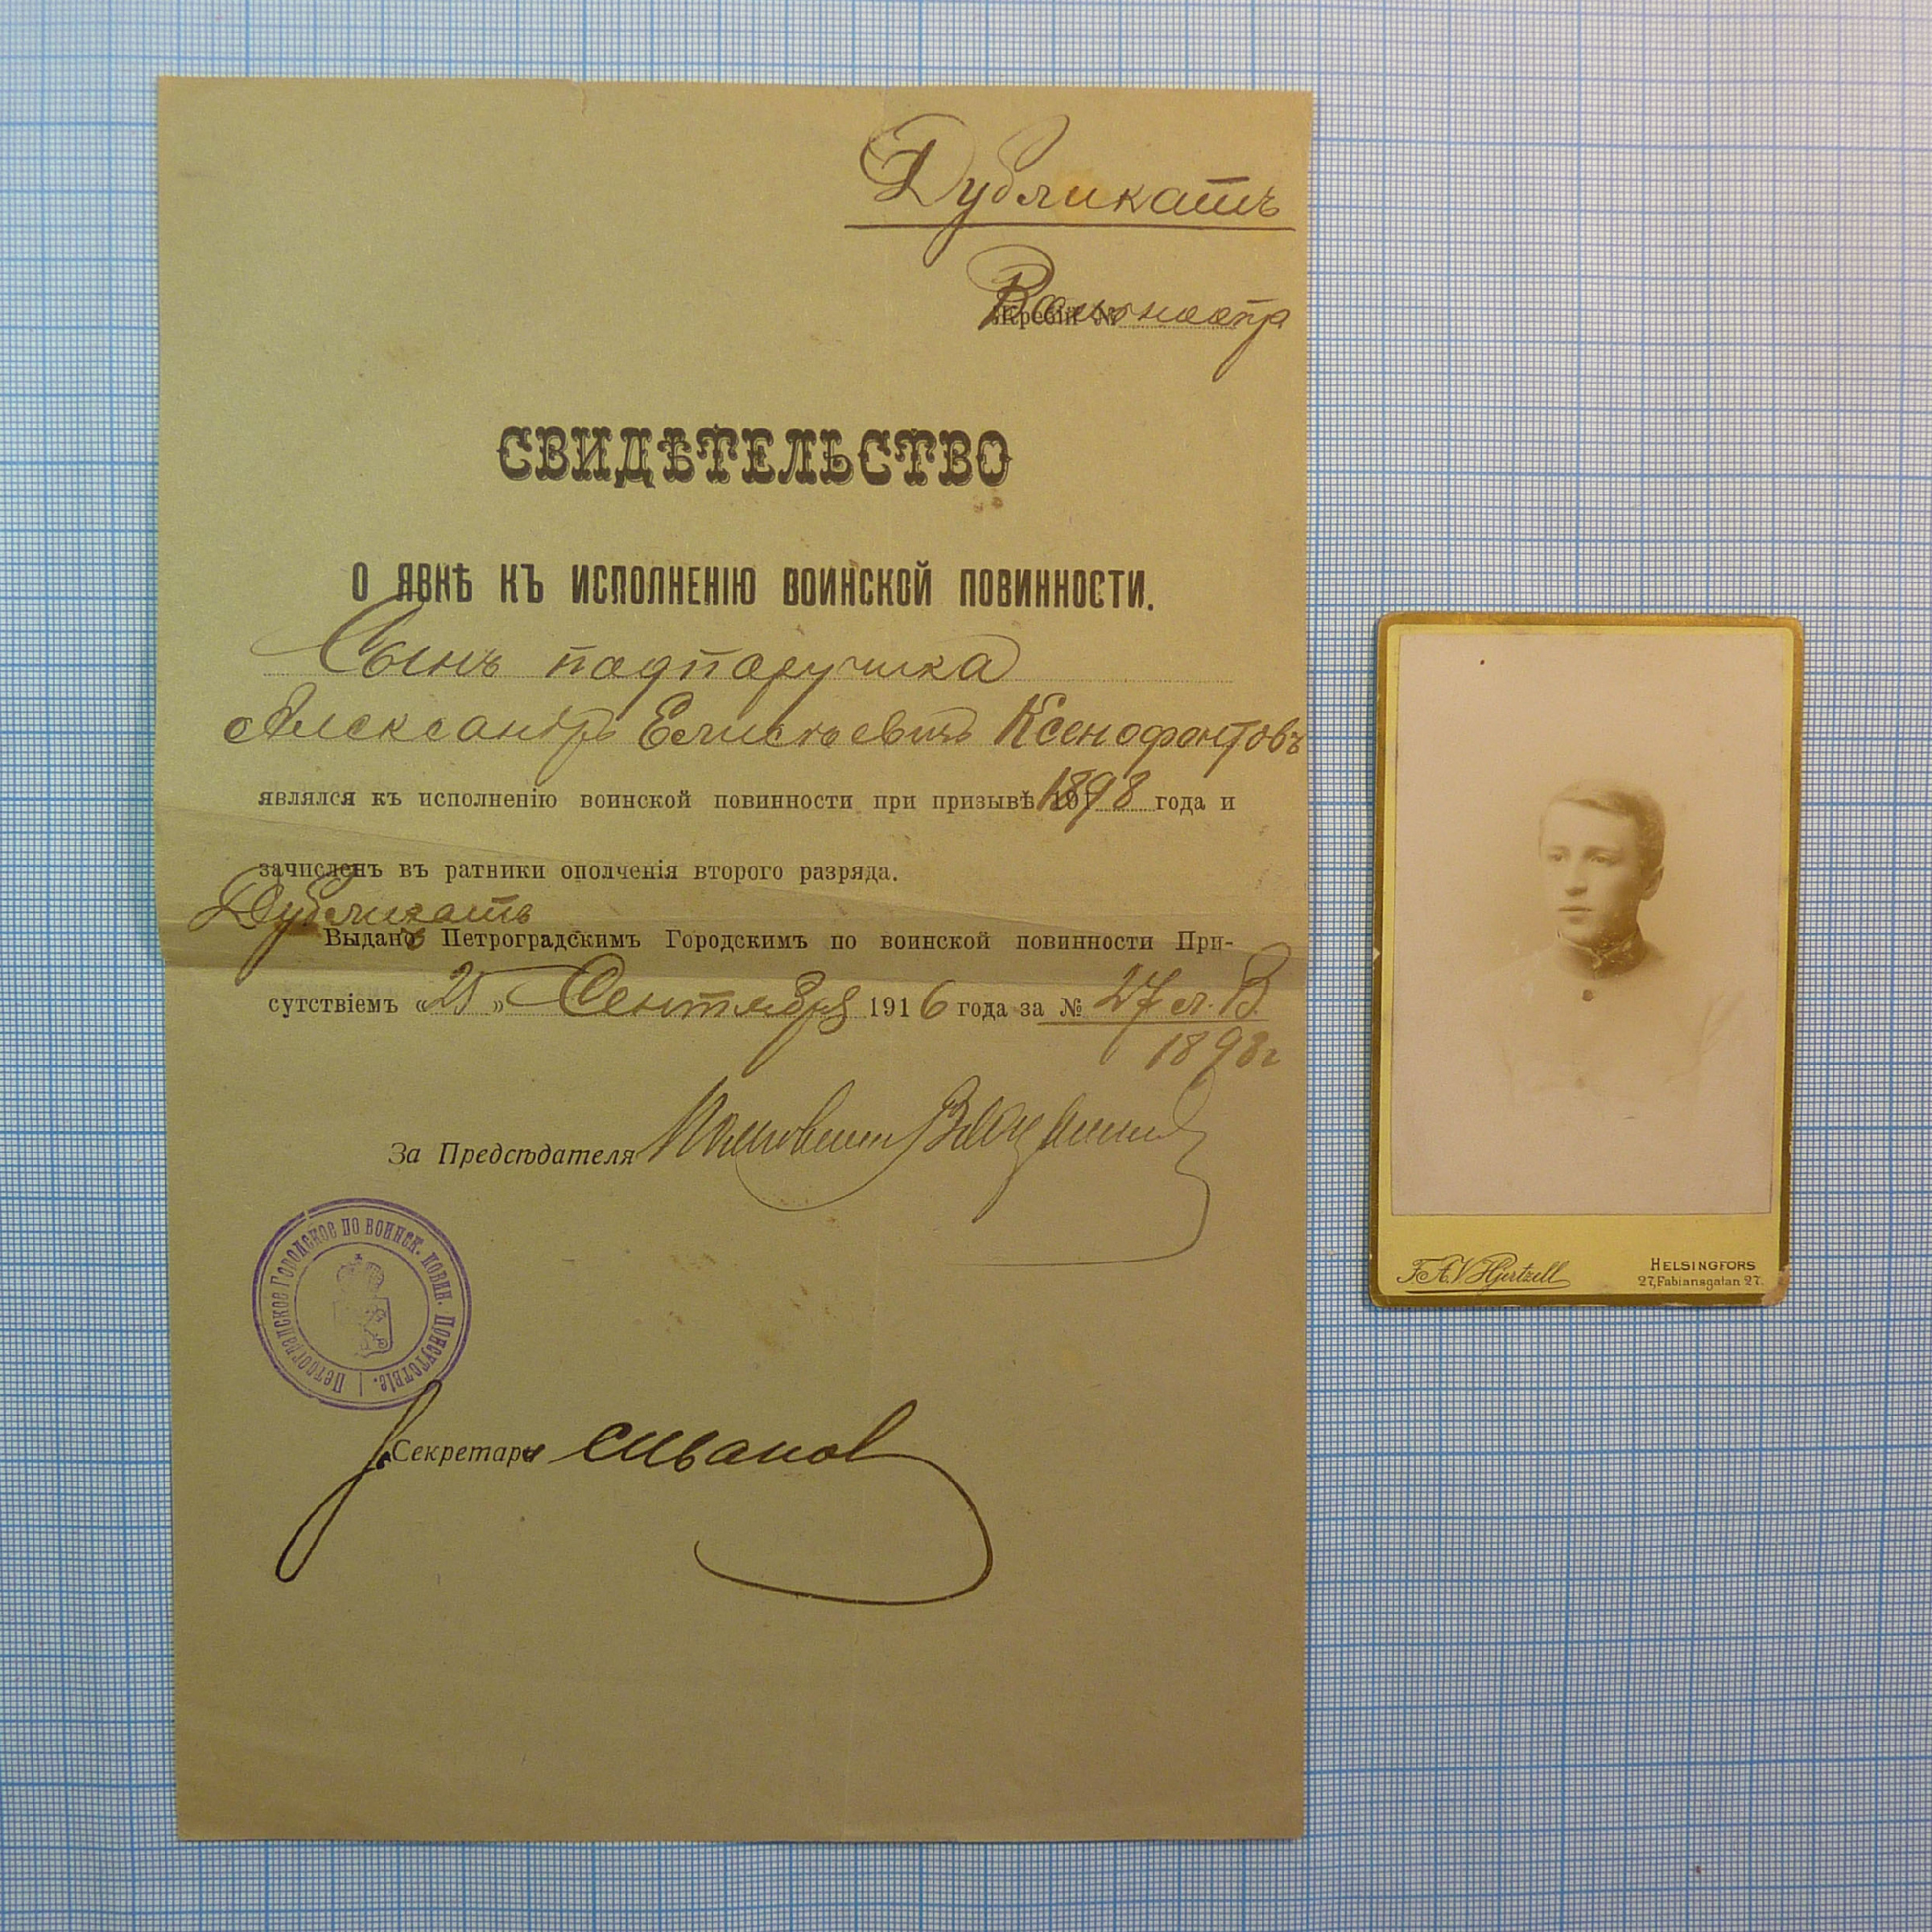 Дубликатъ
Жребій №
СВИДѢТЕЛЬСТВО
О ЯВКѢ КЪ ИСПОЛНЕНІЮ ВОИНСКОЙ ПОВИННОСТИ.
Сынъ подпоручика
Александръ Елисѣевичъ Ксенофонтовъ
являлся къ исполненію воинской повинности при призывѣ 1898 года и
зачисленъ въ ратники ополченія второго разряда.
Дубликатъ
Выданъ Петроградскимъ Городскимъ по воинской повинности При-
сутствіемъ «25» Сентября 1916 года за № 27 л. В.
1898 г
За Предсѣдателя Полковникъ
Петроградское Городское по воинск. повин. Присутствіе.
Секретарь Иванов
F.A.V. Hjertzell
HELSINGFORS
27, Fabiansgatan 27.